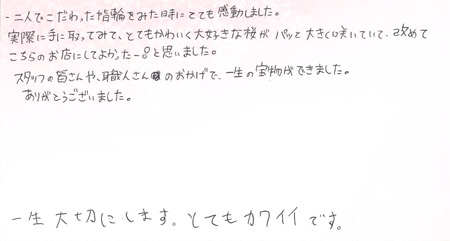 ・二人でこだわった指輪をみた時にとても感動しました。
実際に手に取ってみて、とてもかわいく大好きな桜がパッと大きく咲いていて、改めて
こちらのお店にしてよかったー!と思いました。
スタッフの皆さんや、職人さんのおかげで、一生の宝物ができました。
ありがとうございました。
一生大切にします。とてもカワイイです。